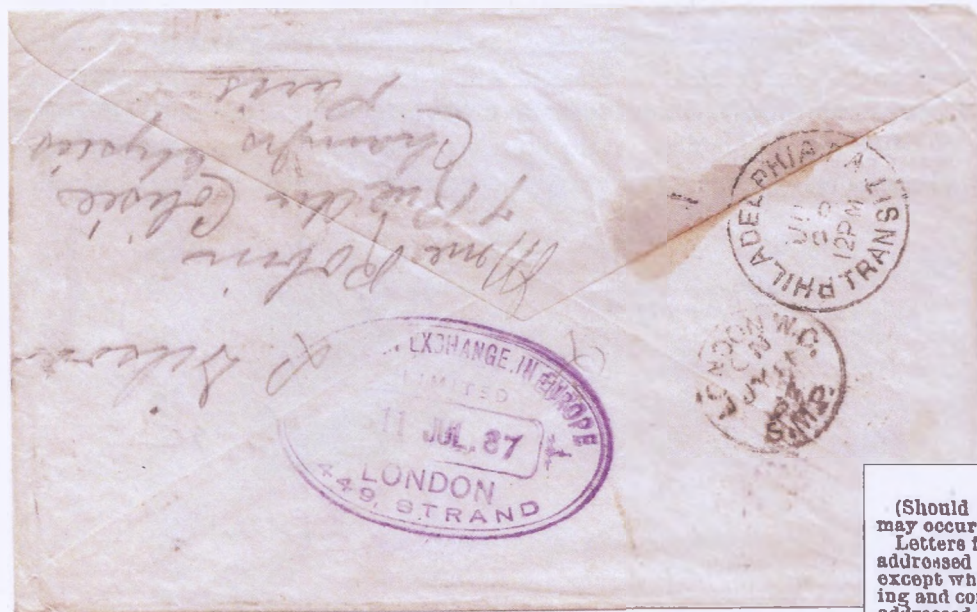 Mme Robin
7 Rue du Colisée
Champs Elysées
Paris
PHILADELPHIA, PA.
12PM
TRANSIT
LONDON W.C.
EXCHANGE IN EUROPE
LIMITED
11 JUL. 87
LONDON
449, STRAND
(Should
may occur
Letters
addressed
except wh
ing and co